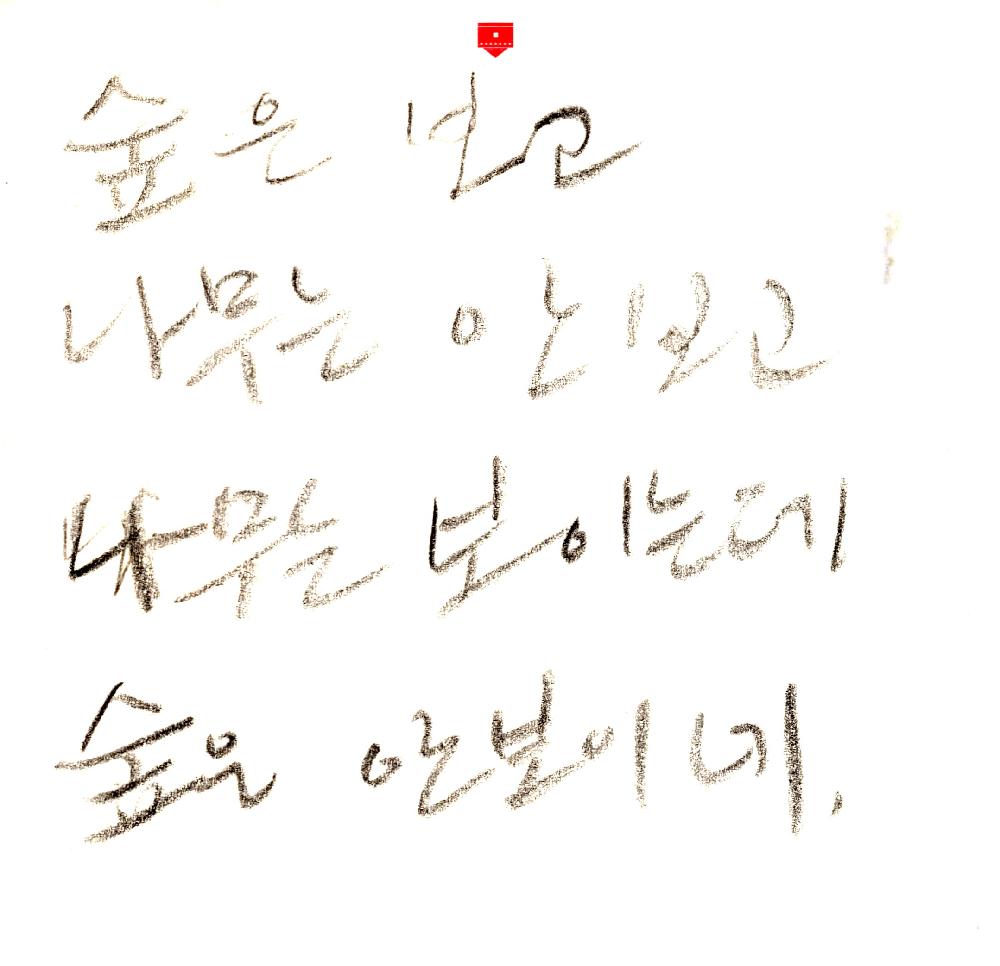 숲은 보고
나무는 안 보고
나무는 보이는데
숲은 안보이네.